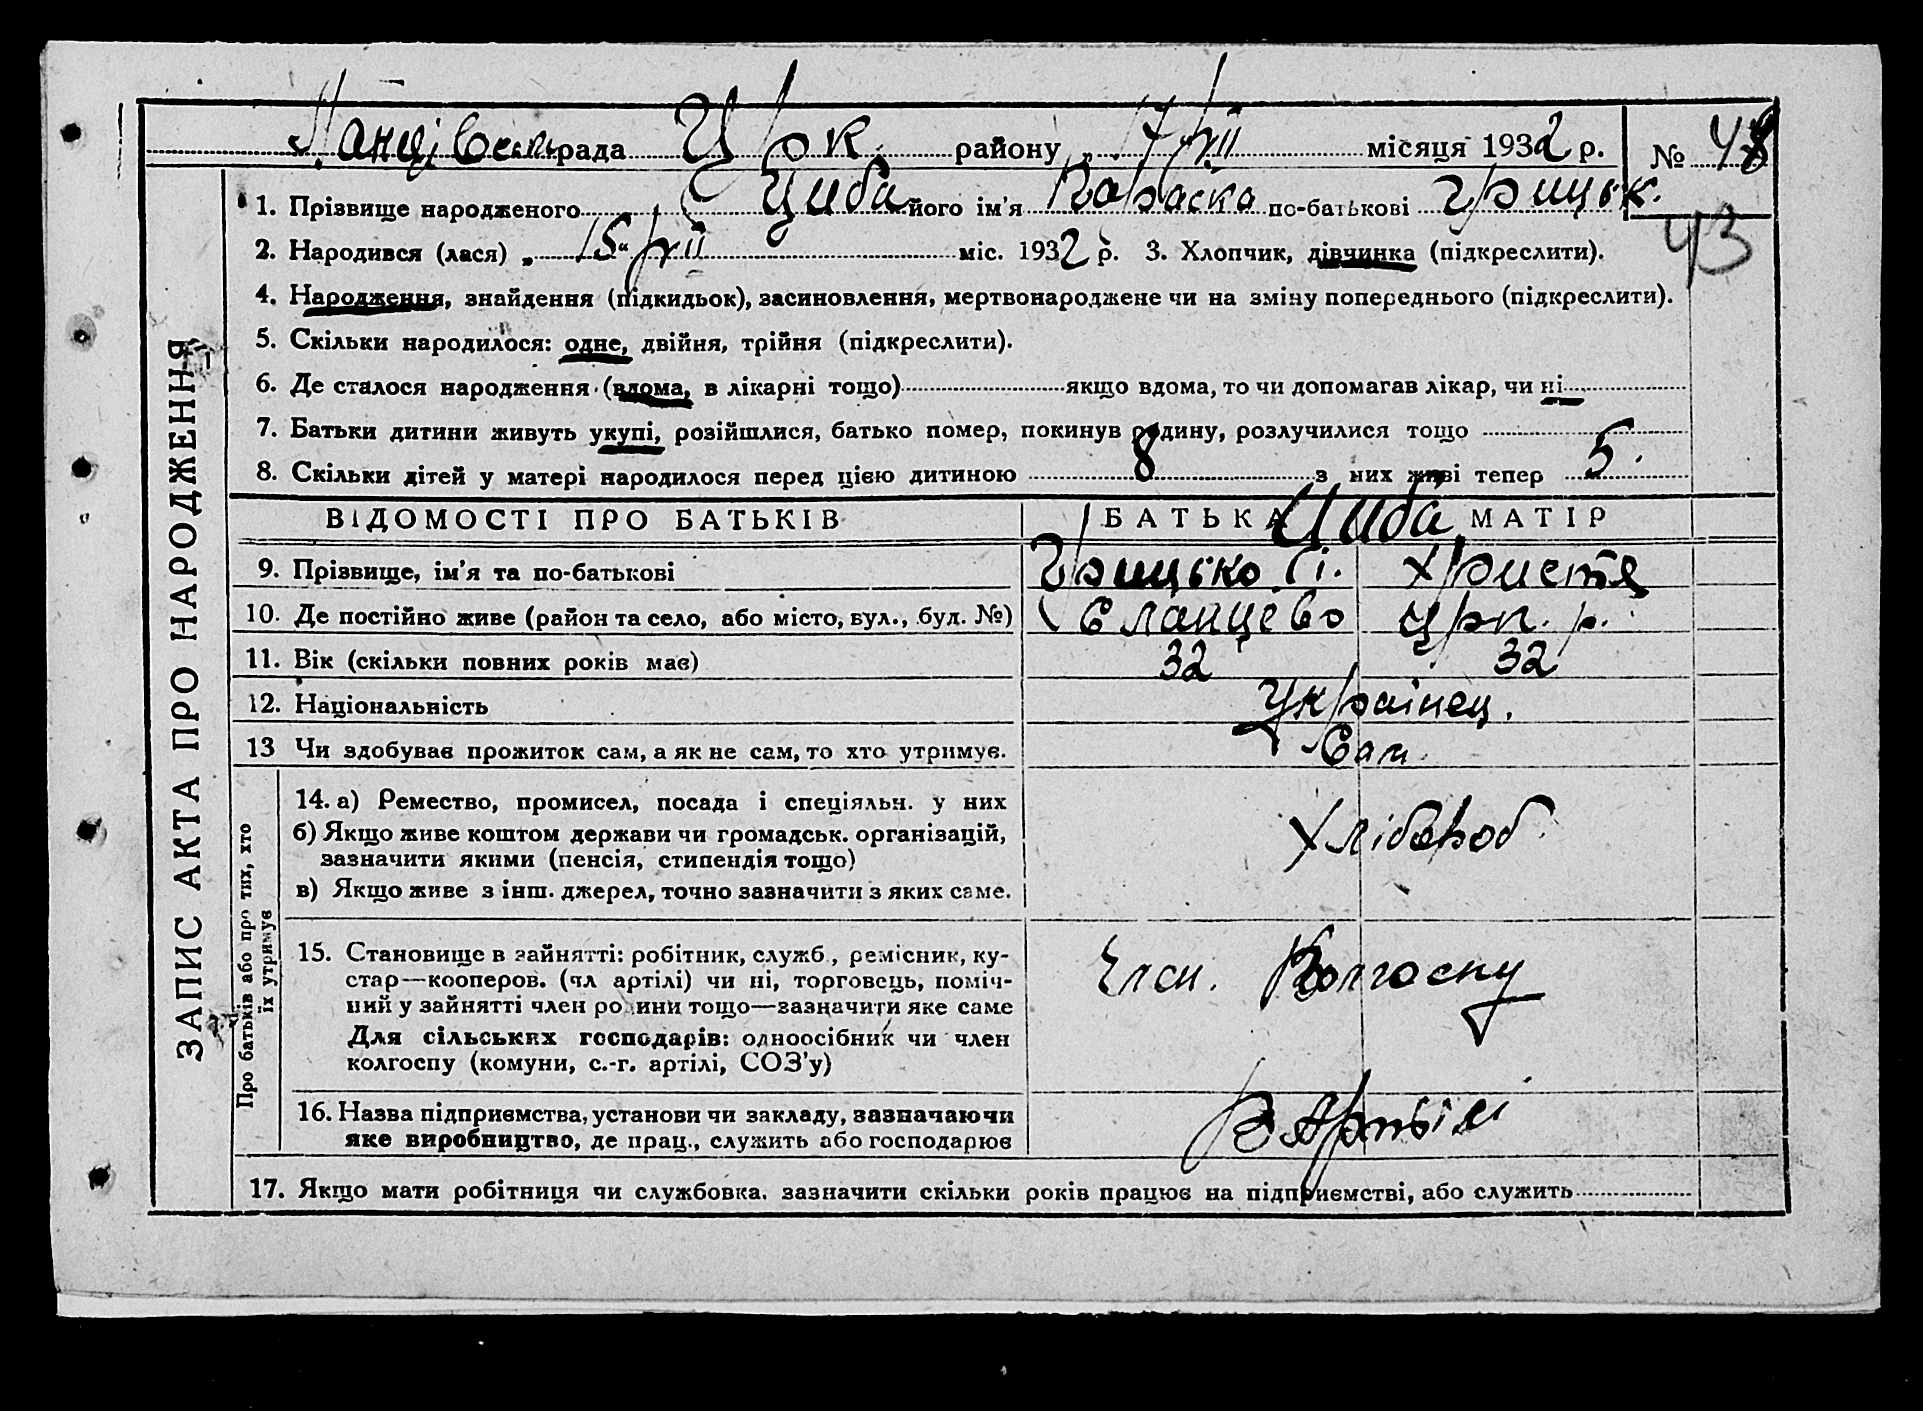 Ланцівськ рада Црк. району „ 17/VII місяця 1932 р. № 48
1. Прізвище народженого Циба його ім'я Параска по-батькові Грицьк.
43
2. Народився (лася) „ 15 " VII міс. 1932 р. 3. Хлопчик, дівчинка (підкреслити).
4. Народження, знайдення (підкидьок), засиновлення, мертвонароджене чи на зміну попереднього (підкреслити).
5. Скільки народилося: одне, двійня, трійня (підкреслити).
6. Де сталося народження (вдома, в лікарні тощо) якщо вдома, то чи допомагав лікар, чи ні
7. Батьки дитини живуть укупі, розійшлися, батько помер, покинув родину, розлучилися тощо
8. Скільки дітей у матері народилося перед цією дитиною 8 з них живі тепер 5.
ВІДОМОСТІ ПРО БАТЬКІВ БАТЬКА Циба МАТІР
9. Прізвище, ім'я та по-батькові Грицько Гі. Христя
10. Де постійно живе (район та село, або місто, вул., буд. №) с Ланцево Црк. р.
11. Вік (скільки повних років має) 32 32
12. Національність Українец.
13 Чи здобуває прожиток сам, а як не сам, то хто утримує. Сам
14. а) Ремество, промисел, посада і спеціяльн. у них
б) Якщо живе коштом держави чи громадськ. організацій,
зазначити якими (пенсія, стипендія тощо)
Хлібороб
в) Якщо живе з інш. джерел, точно зазначити з яких саме.
15. Становище в зайнятті: робітник, служб., ремісник, ку-
стар—кооперов. (чл артілі) чи ні, торговець, поміч-
ний у зайнятті член родини тощо—зазначити яке саме
Член. Колгоспу
Для сільських господарів: одноосібник чи член
колгоспу (комуни, с.-г. артілі, СОЗ'у)
16. Назва підприємства, установи чи закладу, зазначаючи
яке виробництво, де прац., служить або господарює
В Артілі
17. Якщо мати робітниця чи службовка, зазначити скільки років працює на підприємстві, або служить
ЗАПИС АКТА ПРО НАРОДЖЕННЯ
Про батьків або про тих, хто
їх утримує